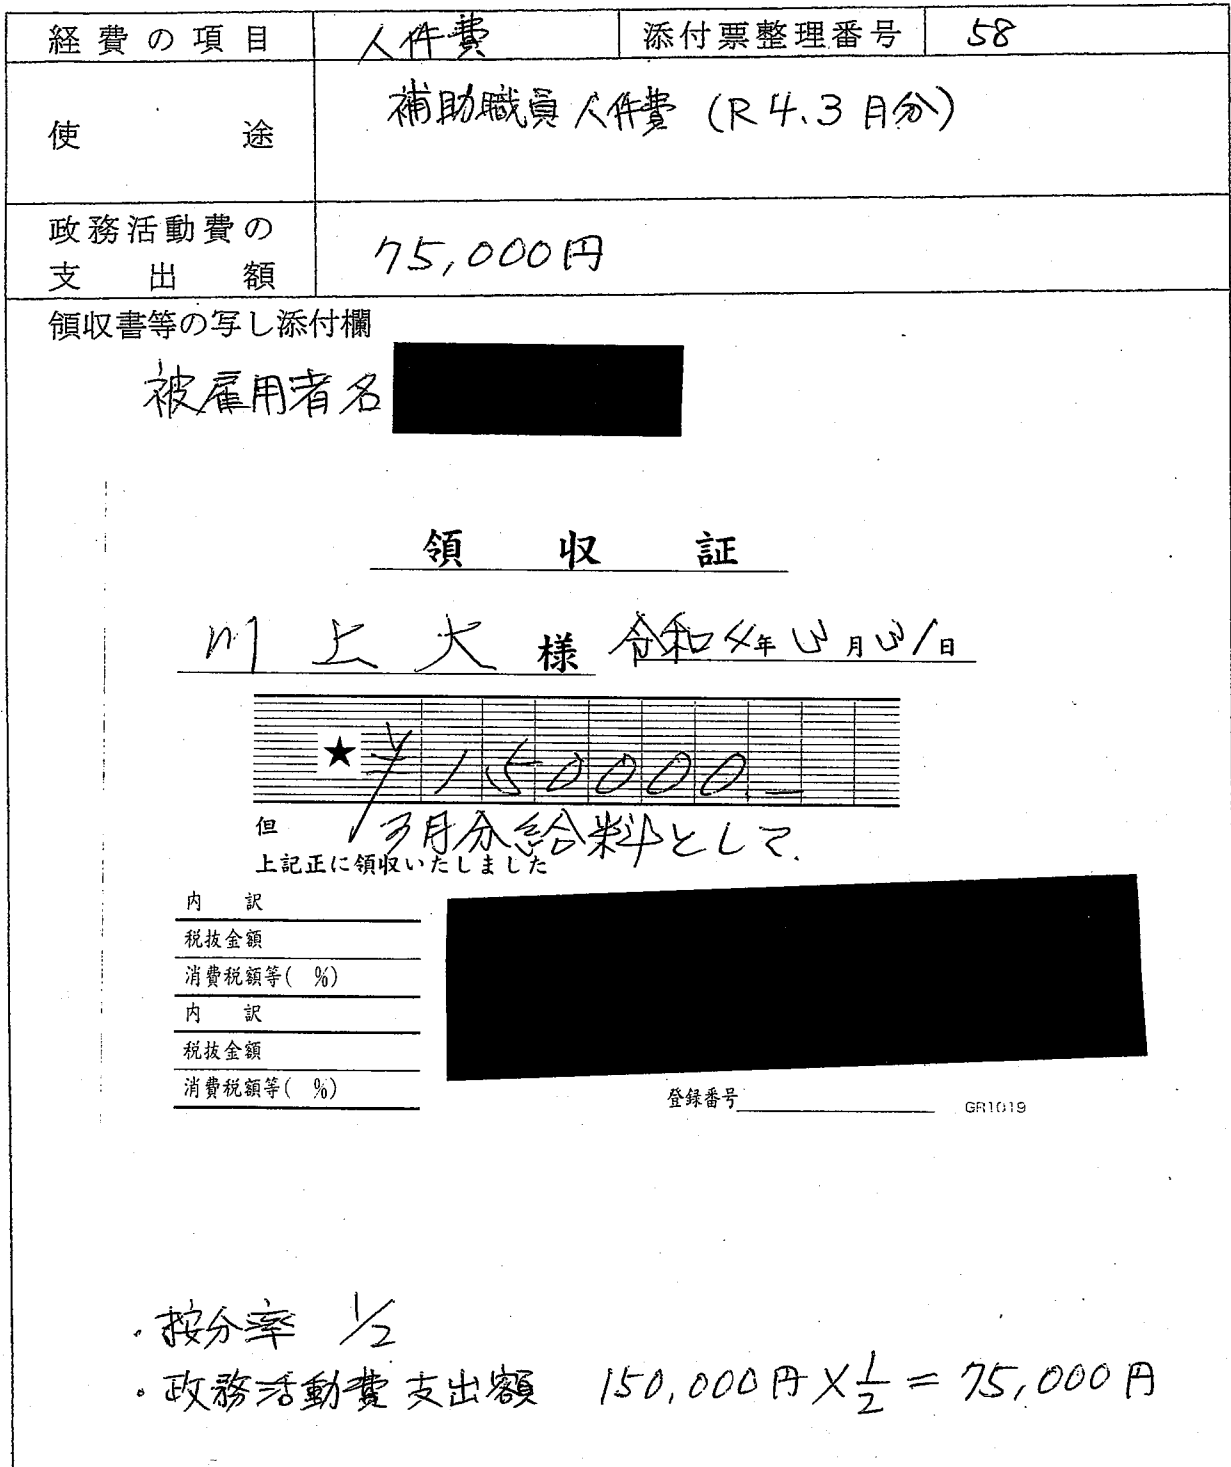 経費の項目 人件費 添付票整理番号 58
使途 補助職員人件費 (R4.3月分)
政務活動費の
支出額 75,000円
領収書等の写し添付欄
被雇用者名
領収証
川上大様 令和4年3月31日
★ ¥150000.―
但 3月分給料として.
上記正に領収いたしました
内訳
税抜金額
消費税額等( %)
内訳
税抜金額
消費税額等( %)
登録番号 GR1019
・按分率 1/2
・政務活動費支出額 150,000円×1/2=75,000円